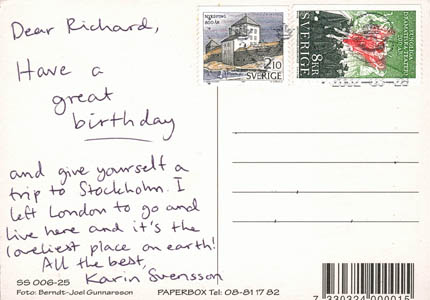 Dear Richard,
Have a
great
birthday
and give yourself a
trip to Stockholm. I
left London to go and
live here and it's the
loveliest place on earth!
All the best,
Karin Svensson
SS 006-25
Foto: Berndt-Joel Gunnarsson
PAPERBOX Tel: 08-81 17 82
NYKÖPING
800 ÅR
2.10
SVERIGE
SVERIGE
8 KR
7 330324 000015